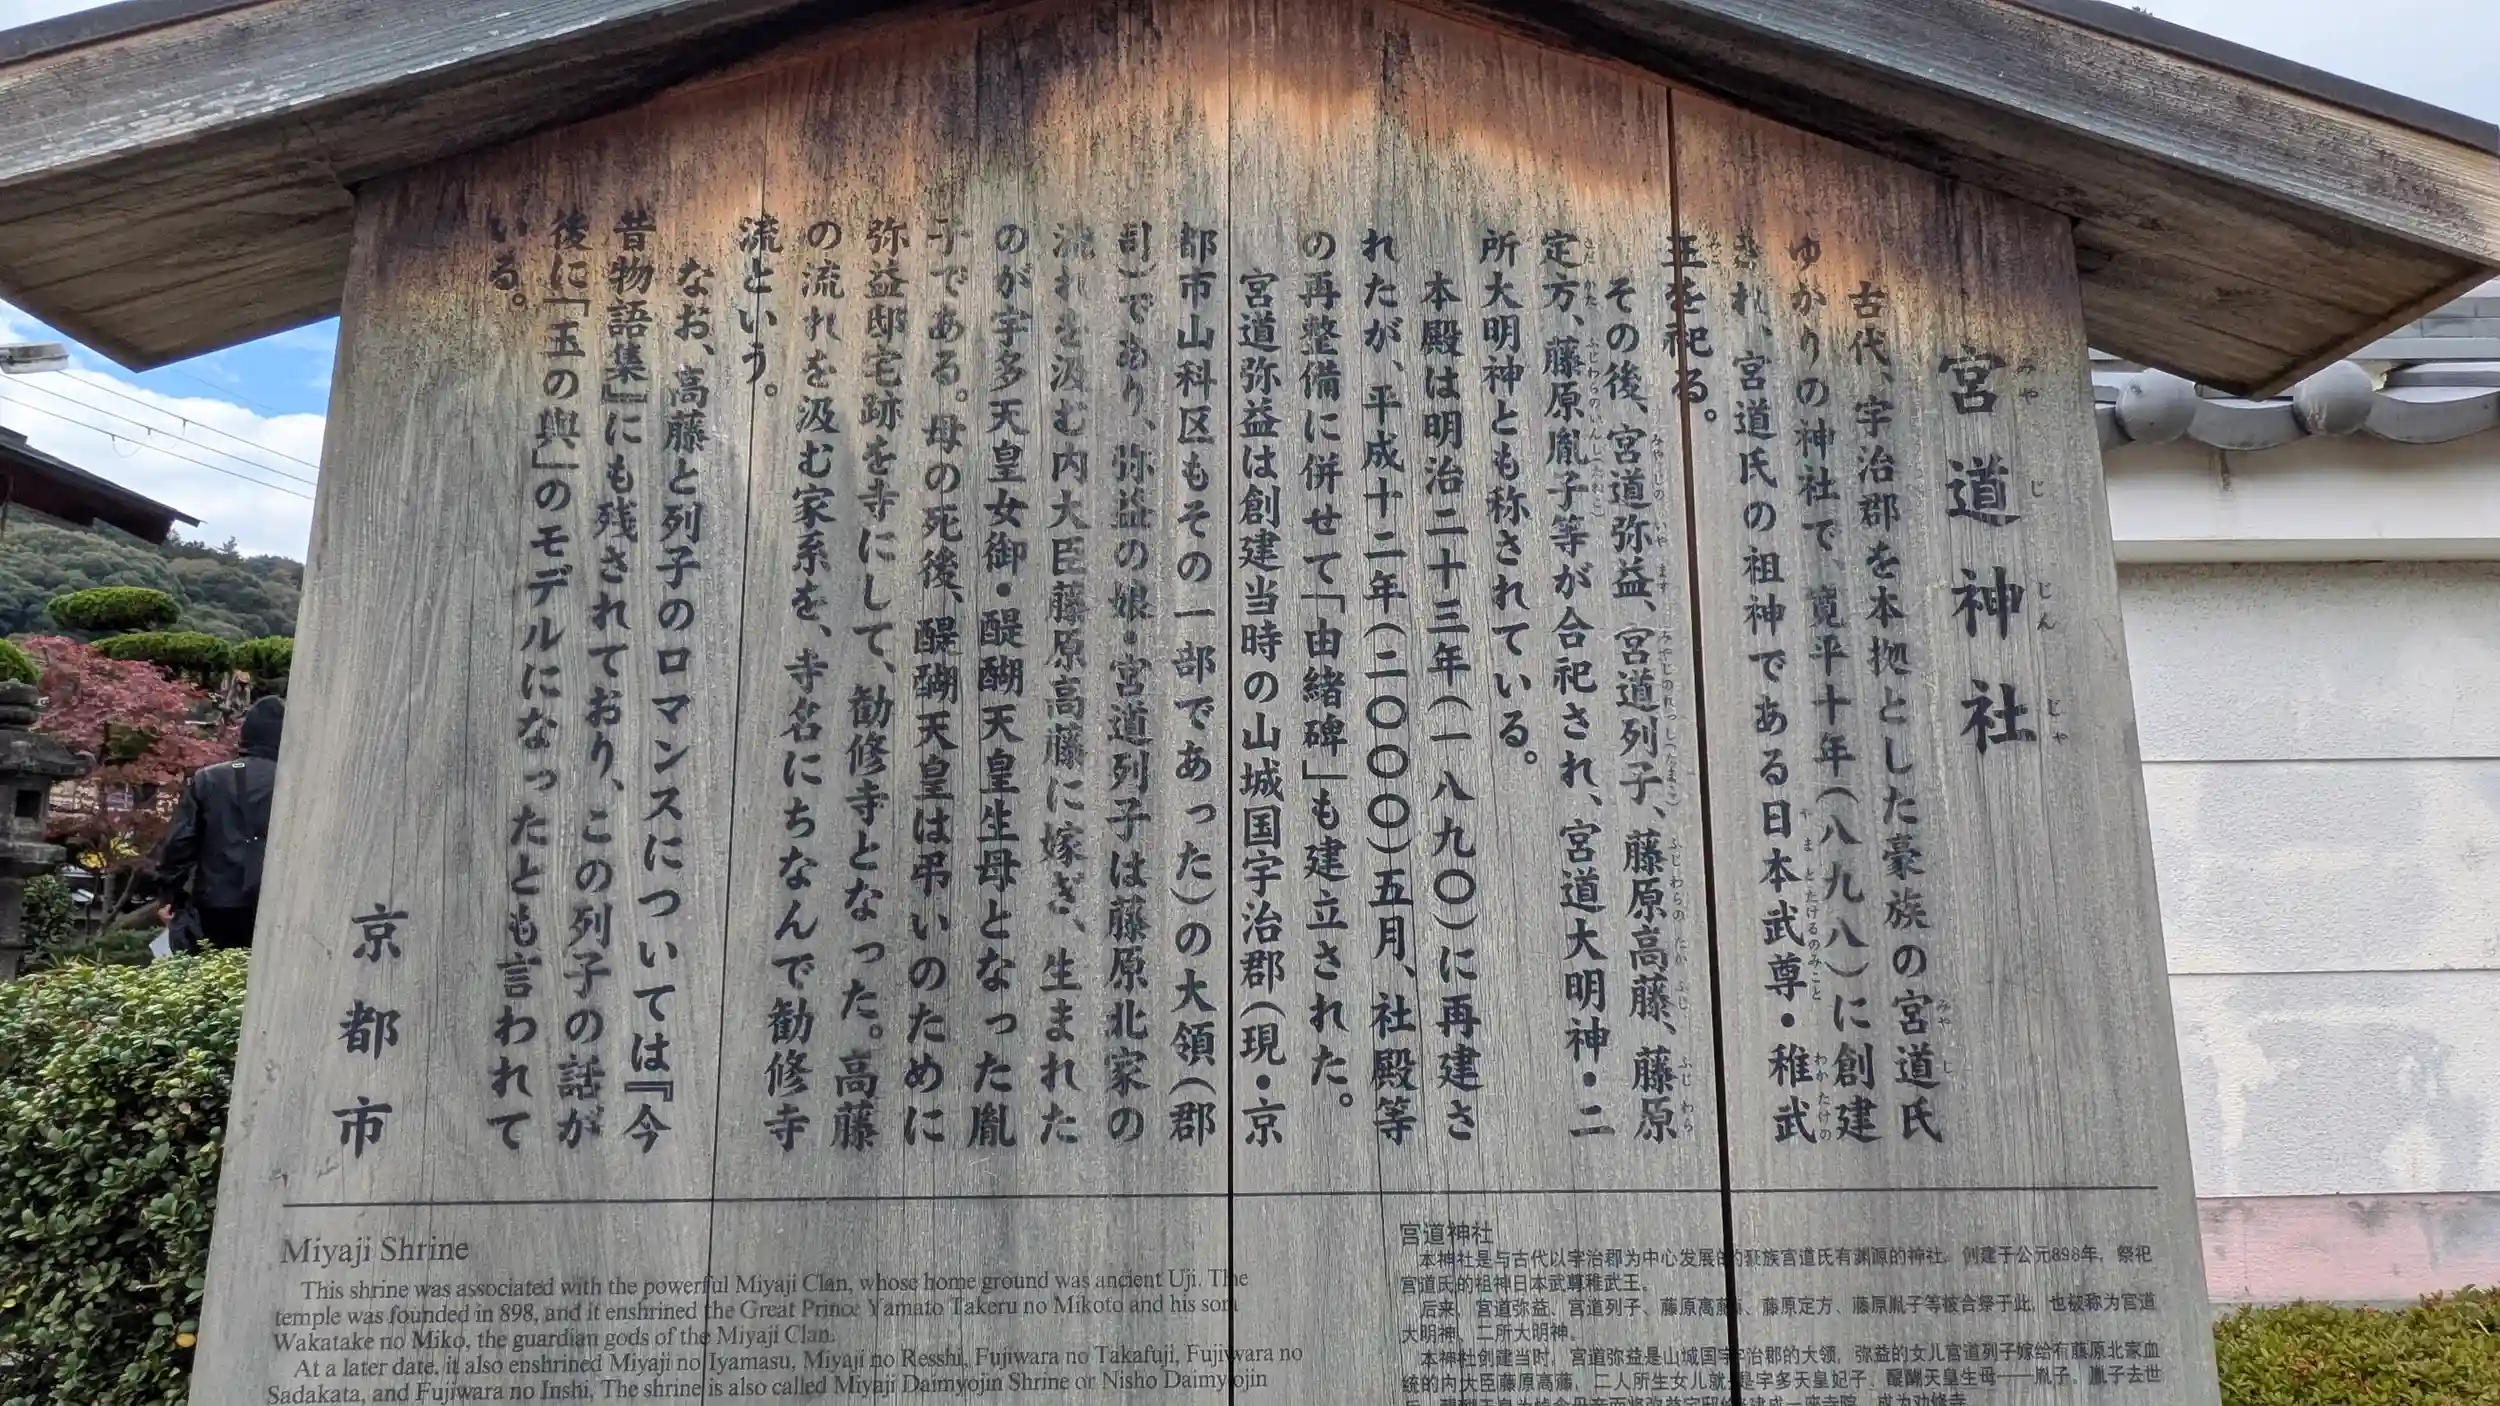 宮道神社
古代、宇治郡を本拠とした豪族の宮道氏
ゆかりの神社で、寛平十年(八九八)に創建
され、宮道氏の祖神である日本武尊・稚武
王を祀る。
その後、宮道弥益、宮道列子、藤原高藤、藤原
定方、藤原胤子等が合祀され、宮道大明神・二
所大明神とも称されている。
本殿は明治二十三年(一八九〇)に再建さ
れたが、平成十二年(二〇〇〇)五月、社殿等
の再整備に併せて「由緒碑」も建立された。
宮道弥益は創建当時の山城国宇治郡(現・京
都市山科区もその一部であった)の大領(郡
司)であり、弥益の娘・宮道列子は藤原北家の
流れを汲む内大臣藤原高藤に嫁ぎ、生まれた
のが宇多天皇女御・醍醐天皇生母となった胤
子である。母の死後、醍醐天皇は弔いのために
弥益邸宅跡を寺にして、勧修寺となった。高藤
の流れを汲む家系を、寺名にちなんで勧修寺
流という。
なお、高藤と列子のロマンスについては『今
昔物語集』にも残されており、この列子の話が
後に「玉の輿」のモデルになったとも言われて
いる。
京都市
Miyaji Shrine
This shrine was associated with the powerful Miyaji Clan, whose home ground was ancient Uji. The
temple was founded in 898, and it enshrined the Great Prince Yamato Takeru no Mikoto and his son
Wakatake no Miko, the guardian gods of the Miyaji Clan.
At a later date, it also enshrined Miyaji no Iyamasu, Miyaji no Resshi, Fujiwara no Takafuji, Fujiwara no
Sadakata, and Fujiwara no Inshi, The shrine is also called Miyaji Daimyojin Shrine or Nisho Daimyojin
宫道神社
本神社是与古代以宇治郡为中心发展的豪族宫道氏有渊源的神社，创建于公元898年，祭祀
宫道氏的祖神日本武尊稚武王。
后来，宫道弥益、宫道列子、藤原高藤、藤原定方、藤原胤子等被合祭于此，也被称为宫道
大明神、二所大明神。
本神社创建当时，宫道弥益是山城国宇治郡的大领，弥益的女儿宫道列子嫁给有藤原北家血
统的内大臣藤原高藤，二人所生女儿就是宇多天皇妃子、醍醐天皇生母——胤子。胤子去世